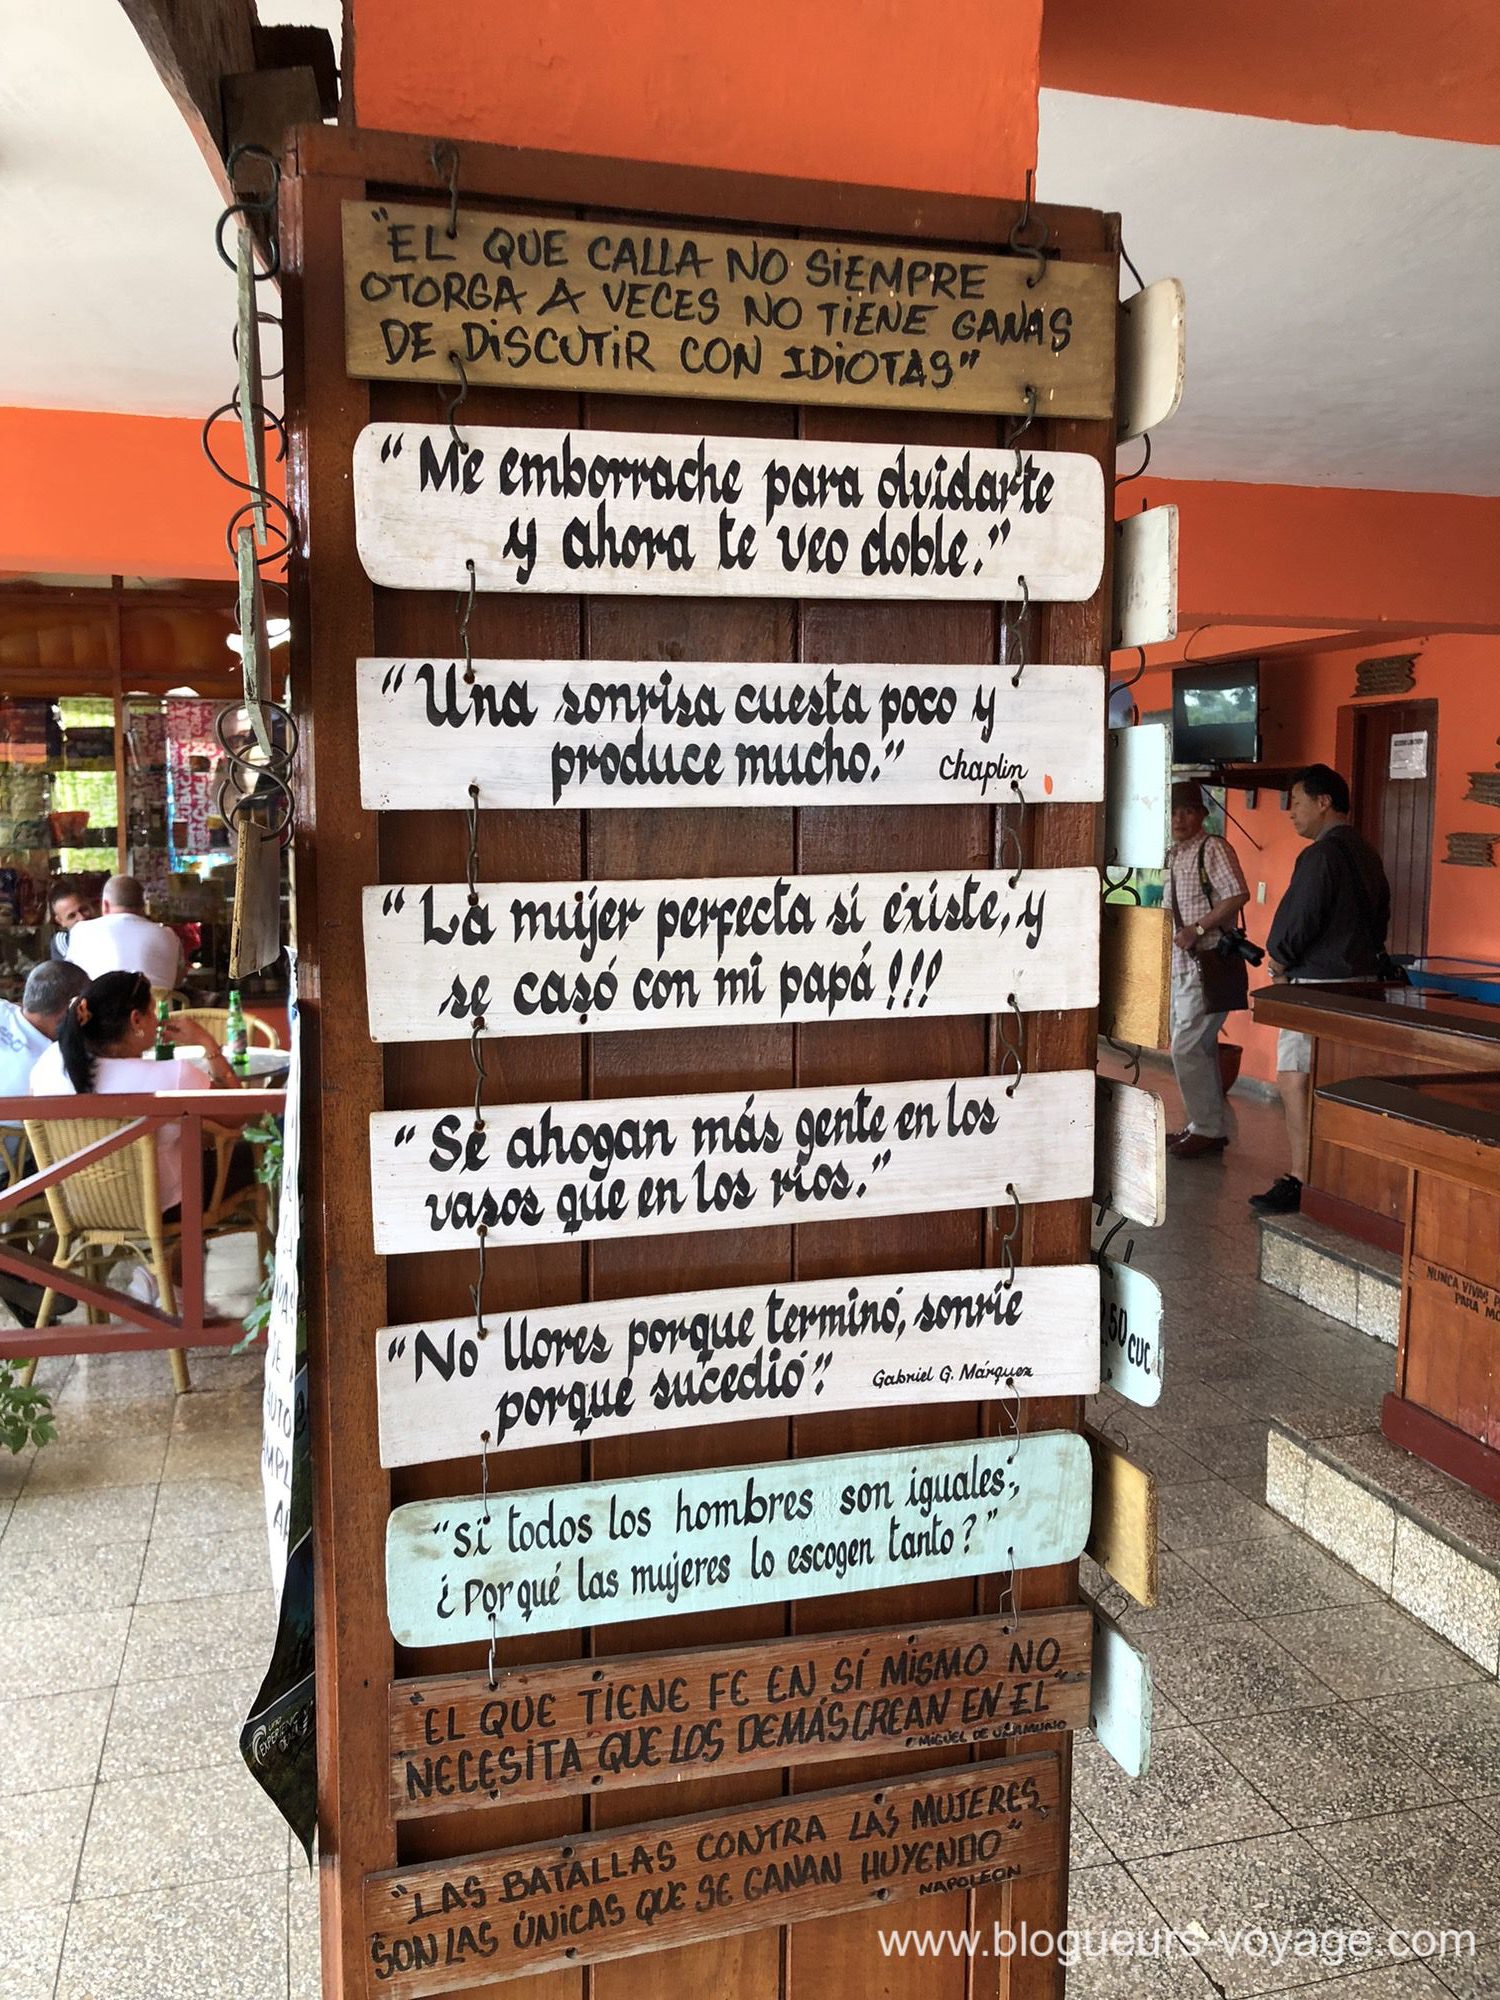 "EL QUE CALLA NO SiEMPRE
OTORGA A VECES NO TiENE GANAS
DE DiSCUTiR CON IDiOTAS"
"Me emborrache para olvidarte
y ahora te veo doble."
"Una sonrisa cuesta poco y
produce mucho." Chaplin
"La mujer perfecta si existe, y
se casó con mi papá!!!
"Se ahogan más gente en los
vasos que en los ríos."
"No llores porque terminó, sonríe
porque sucedió". Gabriel G. Márquez
"si todos los hombres son iguales;
¿Por qué las mujeres lo escogen tanto?"
"EL QUE TiENE FE EN SÍ MiSMO NO
NECESiTA QUE LOS DEMÁS CREAN EN EL"
MiGUEL DE UNAMUNO
"LAS BATALLAS CONTRA LAS MUJERES
SON LAS ÚNiCAS QUE SE GANAN HUYENDO"
NAPOLEON
50 CUC
NUNCA VIVAS
PARA
www.blogueurs-voyage.com